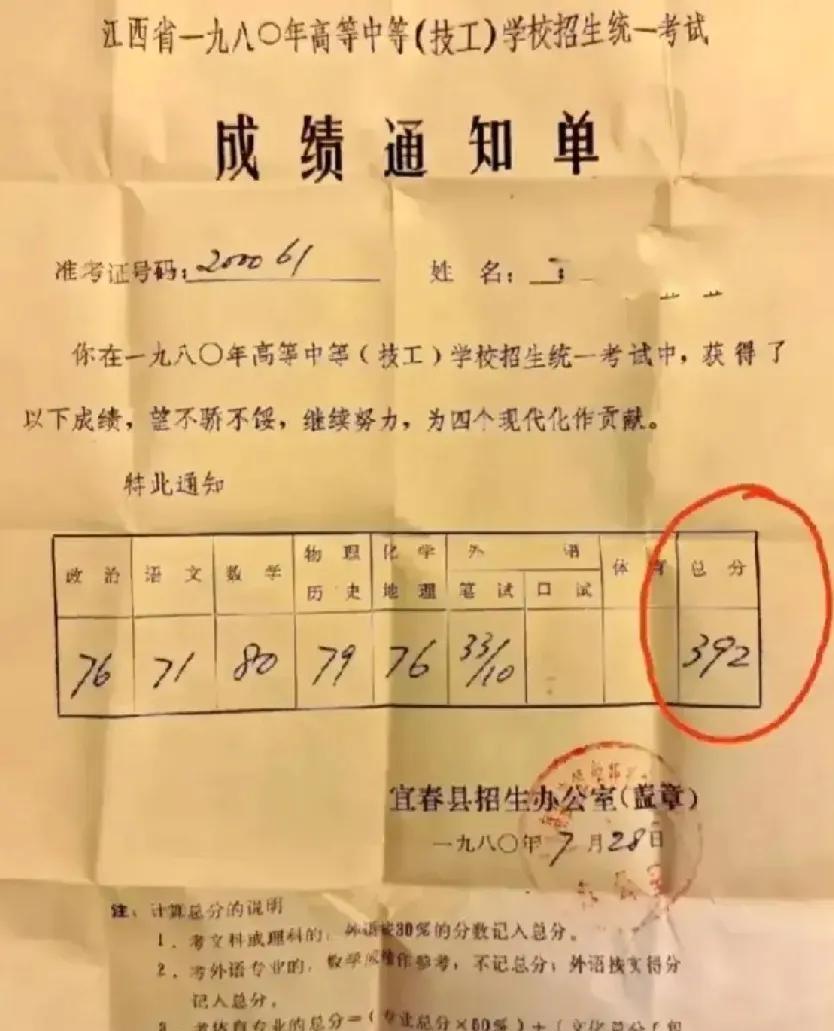 江西省一九八〇年高等中等(技工)学校招生统一考试
成绩通知单
准考证号码:200061 姓名:
你在一九八〇年高等中等(技工)学校招生统一考试中,获得了
以下成绩,望不骄不馁,继续努力,为四个现代化作贡献。
特此通知
政治 语文 数学 物理 化学 外语 体育 总分
历史 地理 笔试 口试
76 71 80 79 76 33/10 392
宜春县招生办公室(盖章)
一九八〇年7月28日
注、计算总分的说明
1、考文科或理科的,外语按30%的分数记入总分。
2、考外语专业的,数学成绩作参考,不记总分;外语按实得分
记入总分。
3、考体育专业的总分=(专业总分×50%)+(文化总分